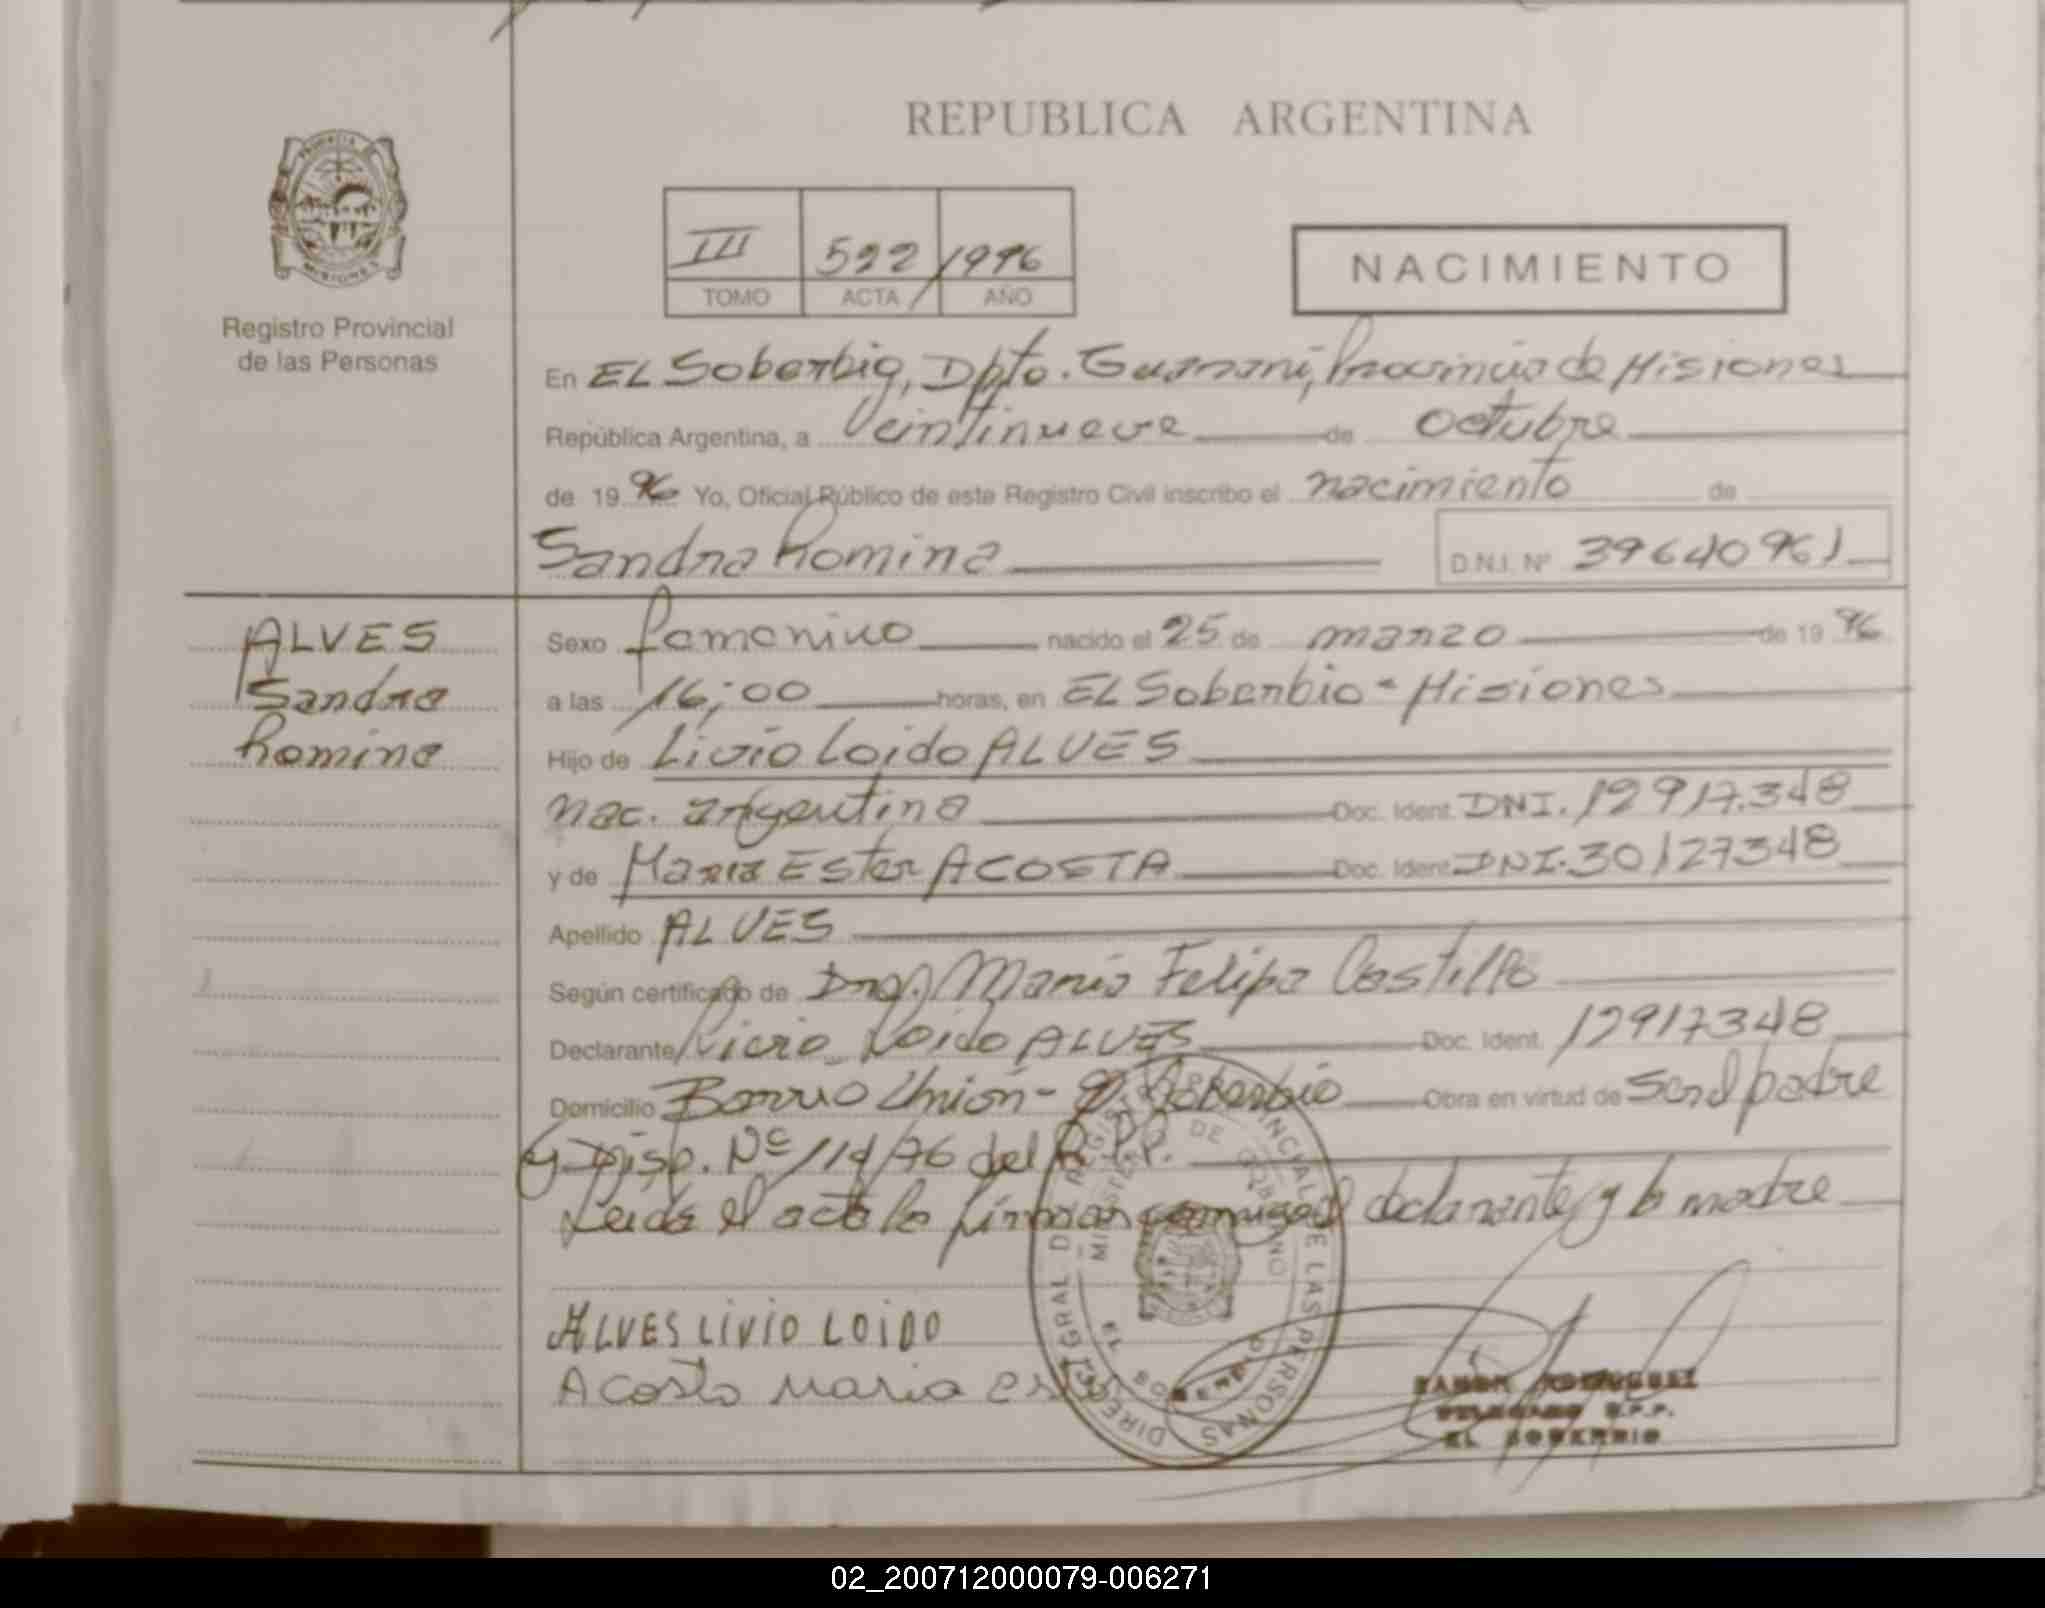 REPUBLICA ARGENTINA
PROVINCIA DE MISIONES
Registro Provincial
de las Personas
III 522 1996
TOMO ACTA AÑO
NACIMIENTO
En EL Soberbio, Dpto. Guarani, Provincia de Misiones
República Argentina, a veintinueve de octubre
de 1996 Yo, Oficial Público de este Registro Civil inscribo el nacimiento de
Sandra Romina D.N.I. Nº 39640961
ALVES
Sandra
Romina
Sexo femenino nacido el 25 de marzo de 1996
a las 16;00 horas, en EL Soberbio - Misiones
Hijo de Livio Loido ALVES
nac. argentina Doc. Ident. DNI. 12917.348
y de Maria Ester ACOSTA Doc. Ident. DNI. 30127348
Apellido ALVES
Según certificado de Dra. Maria Felipa Castillo
Declarante Livio Loido ALVES Doc. Ident. 12917348
Domicilio Barrio Unión - El Soberbio Obra en virtud de ser el padre
y Disp. Nº 114/76 del R.P.P.
Leida el acta la firman conmigo el declarante y la madre
ALVES LIVIO LOIDO
Acosta Maria ester
DIREC. GRAL DE REGISTRO PROVINCIAL DE LAS PERSONAS
MINISTERIO DE GOBIERNO
EL SOBERBIO
RAMON RODRIGUEZ
DELEGADO R.P.P.
EL SOBERBIO
02_200712000079-006271